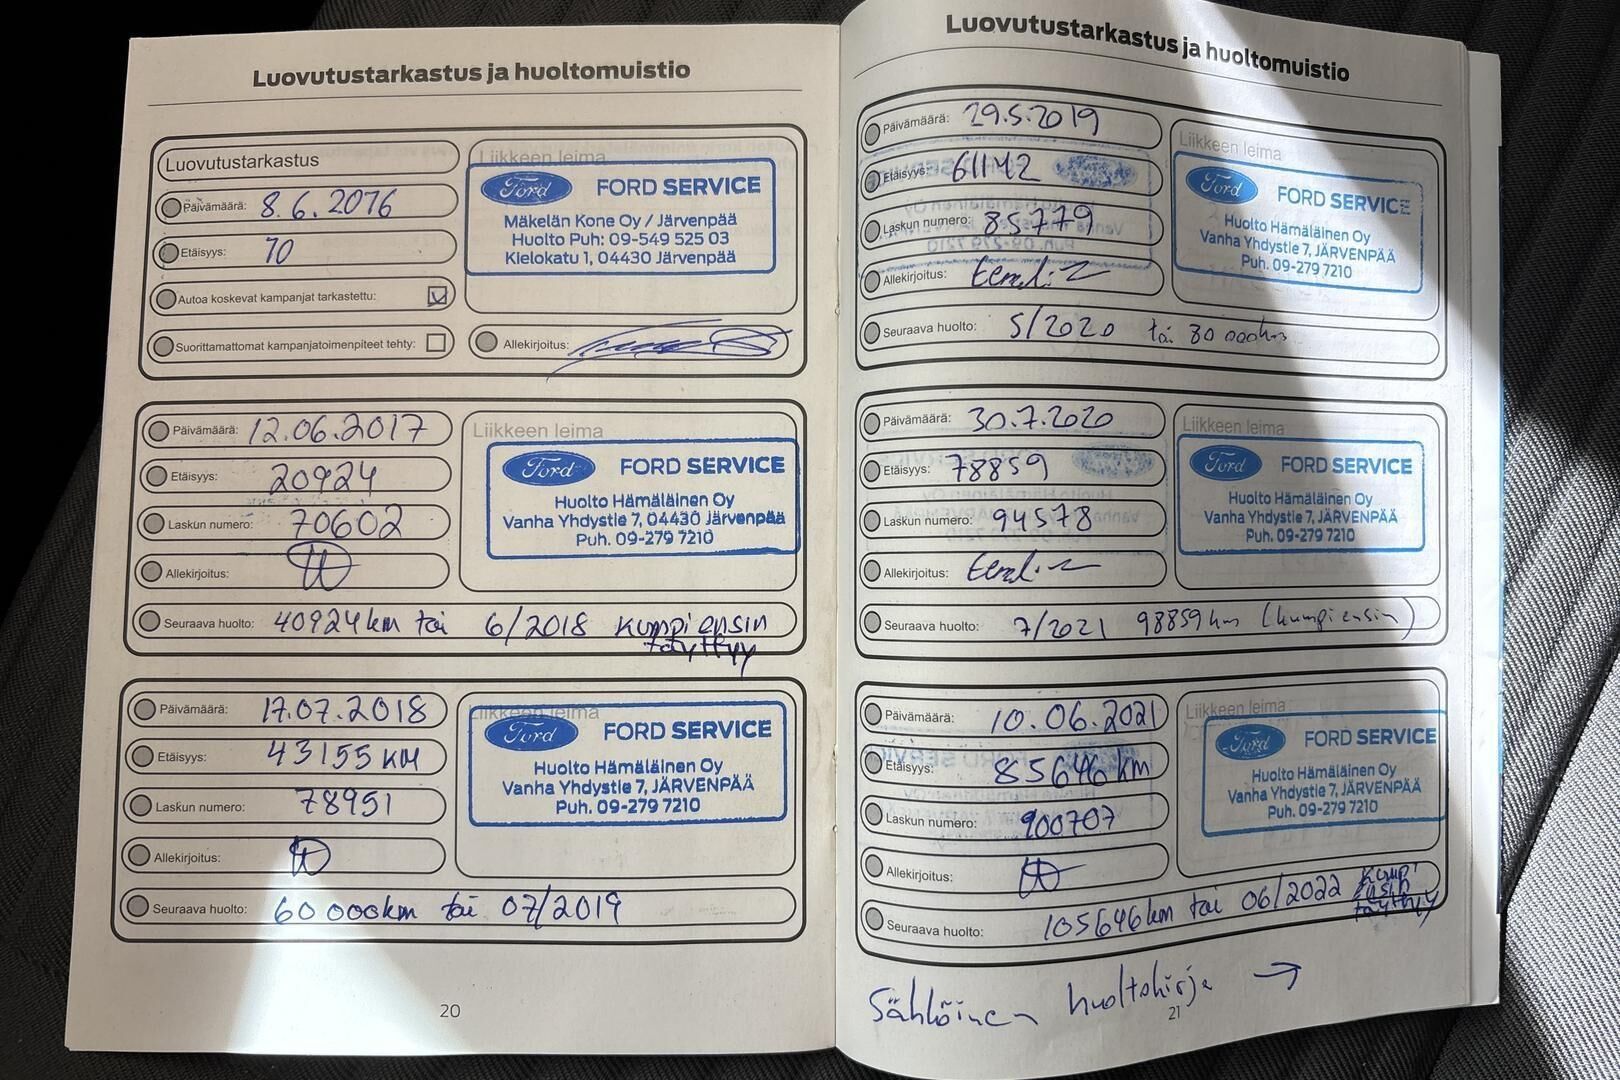 Luovutustarkastus ja huoltomuistio
Luovutustarkastus
Liikkeen leima
Päivämäärä: 8.6.2016
Etäisyys: 10
Autoa koskevat kampanjat tarkastettu:
Suorittamattomat kampanjatoimenpiteet tehty:
Ford FORD SERVICE
Mäkelän Kone Oy / Järvenpää
Huolto Puh: 09-549 525 03
Kielokatu 1, 04430 Järvenpää
Allekirjoitus:
Päivämäärä: 12.06.2017
Etäisyys: 20924
Laskun numero: 70602
Allekirjoitus:
Liikkeen leima
Ford FORD SERVICE
Huolto Hämäläinen Oy
Vanha Yhdystie 7, 04430 Järvenpää
Puh. 09-279 7210
Seuraava huolto: 40924km tai 6/2018 kumpi ensin
täyttyy
Päivämäärä: 17.07.2018
Etäisyys: 43155 KM
Laskun numero: 78951
Allekirjoitus:
Liikkeen leima
Ford FORD SERVICE
Huolto Hämäläinen Oy
Vanha Yhdystie 7, JÄRVENPÄÄ
Puh. 09-279 7210
Seuraava huolto: 60 000km tai 07/2019
20
Luovutustarkastus ja huoltomuistio
Päivämäärä: 29.5.2019
Etäisyys: 61142
Laskun numero: 85779
Allekirjoitus:
Liikkeen leima
Ford FORD SERVICE
Huolto Hämäläinen Oy
Vanha Yhdystie 7, JÄRVENPÄÄ
Puh. 09-279 7210
Seuraava huolto: 5/2020 tai 80 000km
Päivämäärä: 30.7.2020
Etäisyys: 78859
Laskun numero: 94578
Allekirjoitus:
Liikkeen leima
Ford FORD SERVICE
Huolto Hämäläinen Oy
Vanha Yhdystie 7, JÄRVENPÄÄ
Puh. 09-279 7210
Seuraava huolto: 7/2021 98859km (kumpi ensin)
Päivämäärä: 10.06.2021
Etäisyys: 85646 km
Laskun numero: 900707
Allekirjoitus:
Liikkeen leima
Ford FORD SERVICE
Huolto Hämäläinen Oy
Vanha Yhdystie 7, JÄRVENPÄÄ
Puh. 09-279 7210
Seuraava huolto: 105646km tai 06/2022 kumpi
ensin
täyttyy
Sähköinen huoltokirja →
21